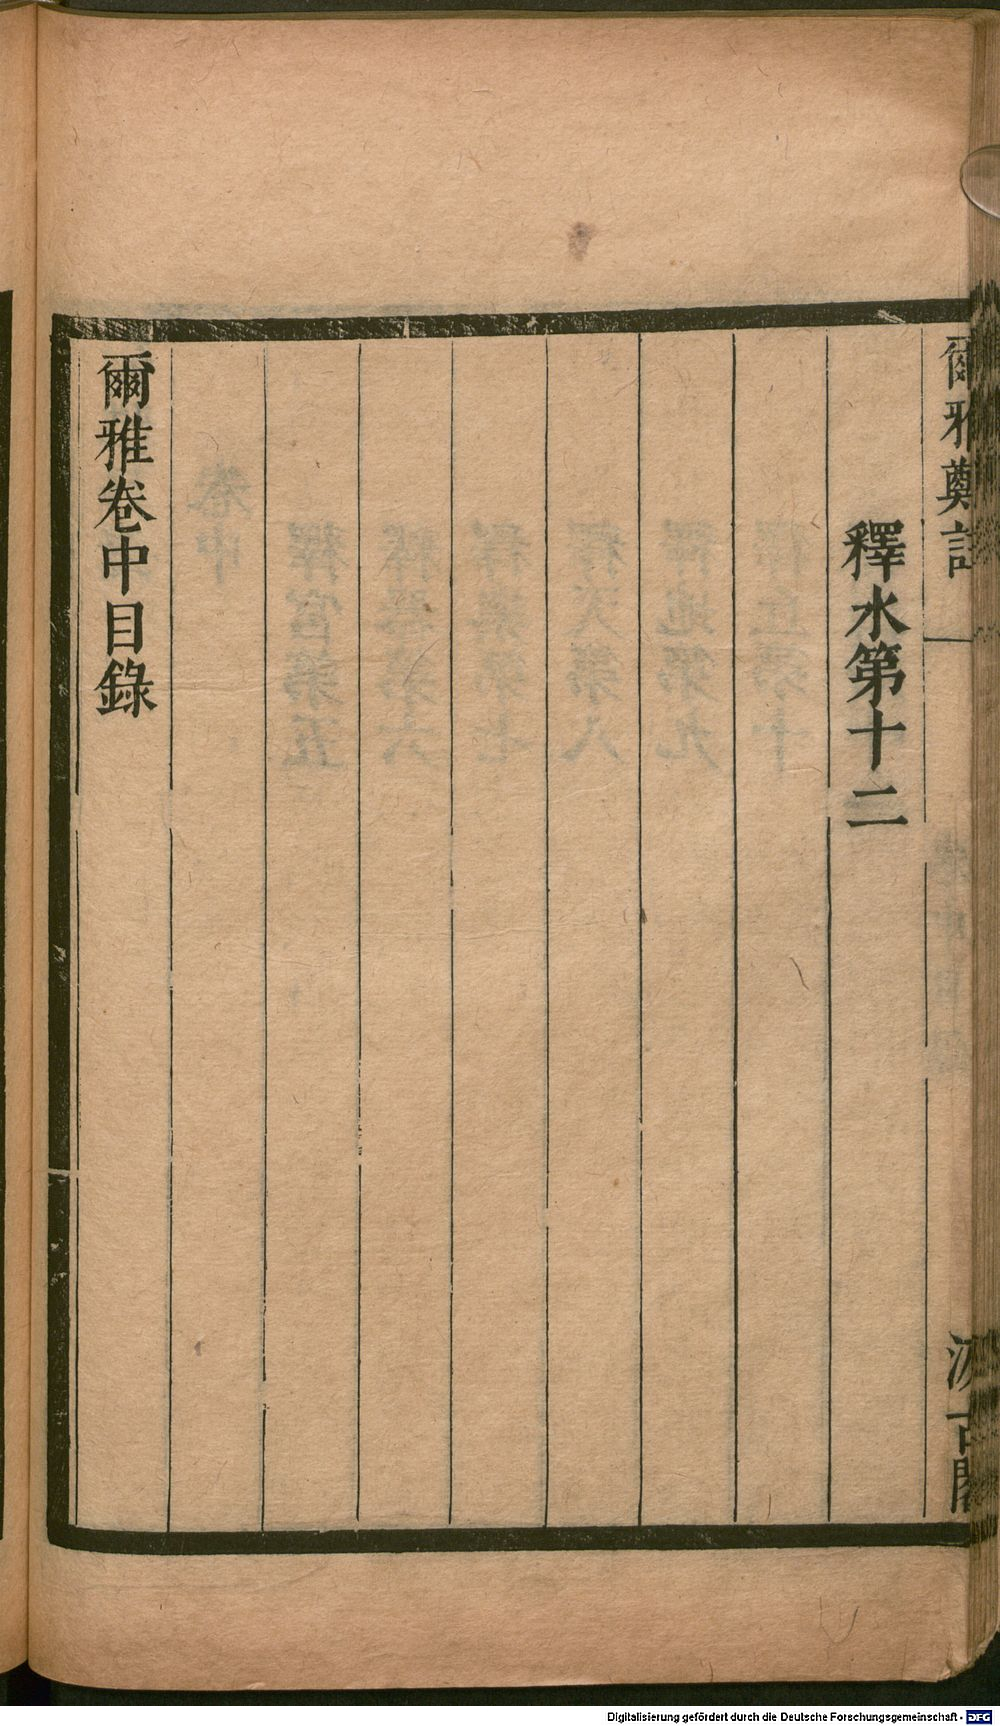 爾雅鄭註
汲古閣
釋水第十二
爾雅卷中目錄
Digitalisierung gefördert durch die Deutsche Forschungsgemeinschaft - DFG